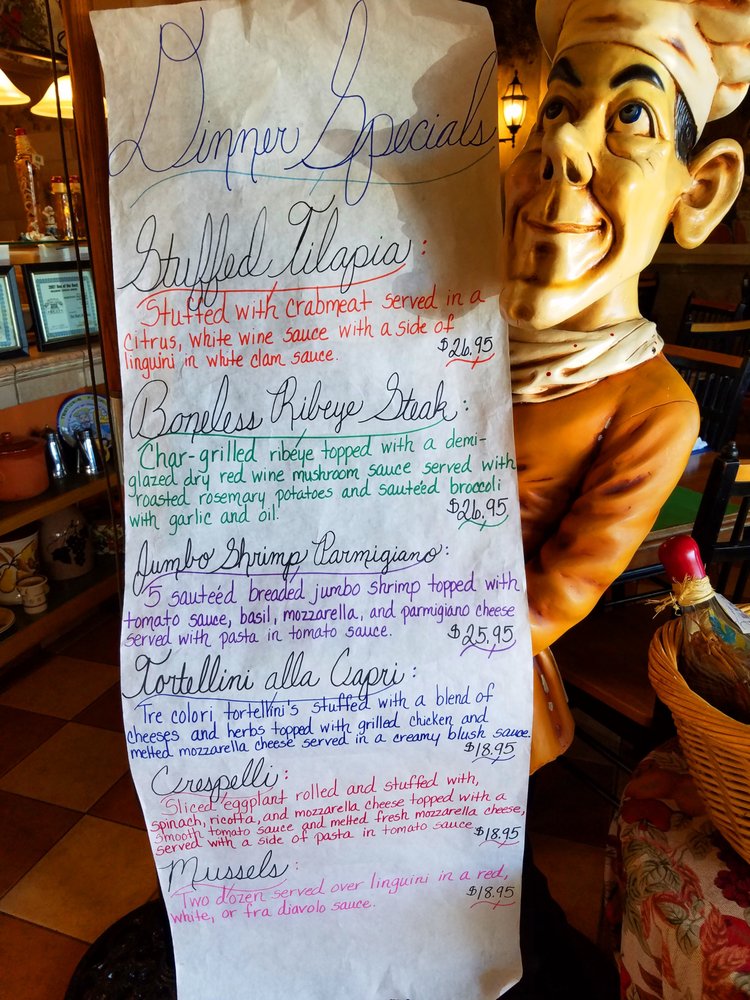 Dinner Specials
Stuffed Tilapia:
Stuffed with crabmeat served in a
citrus, white wine sauce with a side of
linguini in white clam sauce.
$26.95
Boneless Ribeye Steak:
Char-grilled ribéye topped with a demi-
glazed dry red wine mushroom sauce served with
roasted rosemary potatoes and sauteéd broccoli
with garlic and oil.
$26.95
Jumbo Shrimp Parmigiano:
5 sauteéd breaded jumbo shrimp topped with
tomato sauce, basil, mozzarella, and parmigiano cheese
served with pasta in tomato sauce.
$25.95
Tortellini alla Capri:
Tre colori tortellini's stuffed with a blend of
cheeses and herbs topped with grilled chicken and
melted mozzarella cheese served in a creamy blush sauce.
$18.95
Crespelli:
Sliced eggplant rolled and stuffed with,
spinach, ricotta, and mozzarella cheese topped with a
smooth tomato sauce and melted fresh mozzarella cheese,
served with a side of pasta in tomato sauce.
$18.95
Mussels:
Two dozen served over linguini in a red,
white, or fra diavolo sauce.
$18.95